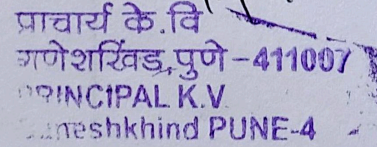 प्राचार्य के.वि
गणेशखिंड,पुणे-411007
PRINCIPAL K.V.
Ganeshkhind PUNE-4